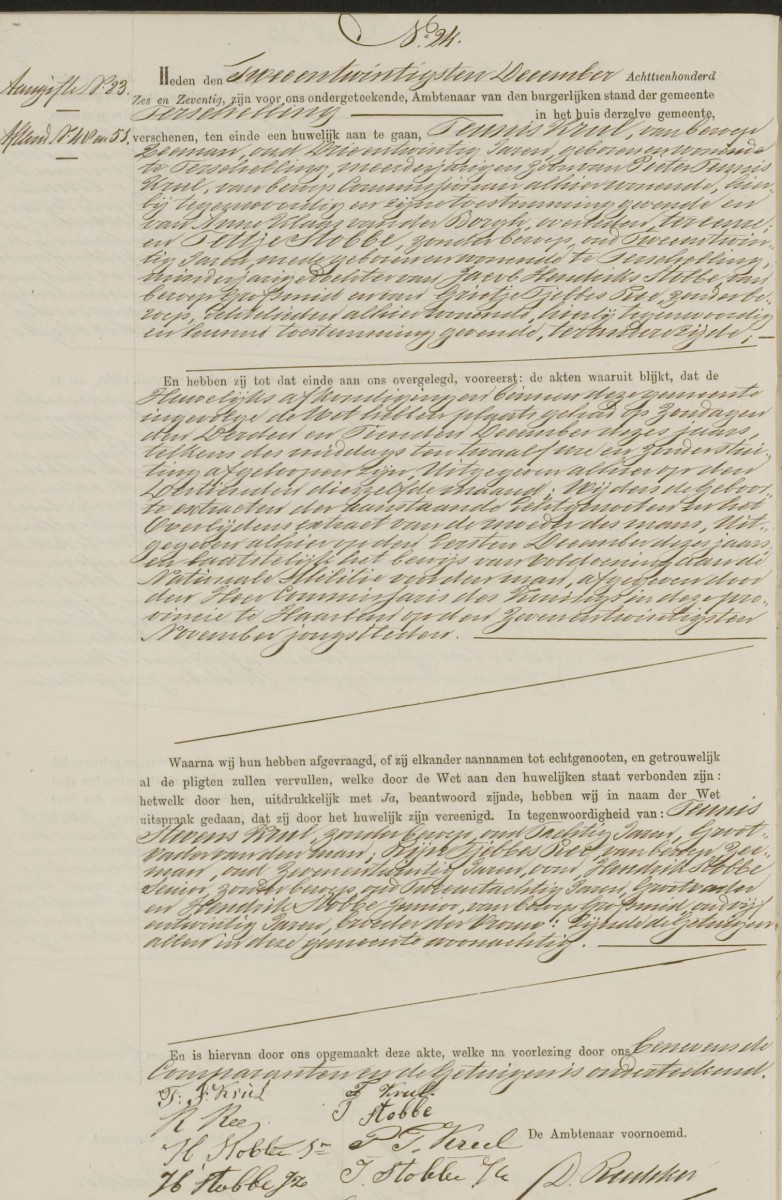 No. 24.
Aangifte No. 23.
Afstand No. 48 en 51.
Heden den Tweeentwintigsten December Achttienhonderd
Zes en Zeventig, zijn voor ons ondergeteekende, Ambtenaar van den burgerlijken stand der gemeente
Terschelling in het huis derzelve gemeente,
verschenen, ten einde een huwelijk aan te gaan, Teunis Krul, van beroep
Zeeman, oud Drieentwintig Jaren, geboren en wonende
te Terschelling, meerderjarigen Zoon van Pieter Teunis
Krul, van beroep Commissionair alhier wonende, hier-
bij tegenwoordig en zijne toestemming gevende en
van Anna Klaas van der Borgh, overleden, ter eenre;
en Tettje Stobbe, zonder beroep, oud Tweeentwin-
tig Jaren, mede geboren en wonende te Terschelling,
minderjarige Dochter van Jacob Hendriks Stobbe, van
beroep Grofsmid en van Grietje Tjebbes Ree, zonder be-
roep, Echtelieden alhier wonende, hierbij tegenwoordig
en hunne toestemming gevende, ter andere Zijde; —
En hebben zij tot dat einde aan ons overgelegd, vooreerst: de akten waaruit blijkt, dat de
Huwelijks afkondigingen binnen deze gemeente
ingevolge de Wet hebben plaats gehad op Zondagen
den Derden en Tienden December dezes jaars,
telkens des middags ten twaalf ure en zonder stui-
ting afgeloopen zijn, Uitgegeven alhier op den
Dertienden dierzelfde maand; Wijders de Geboor-
te extracten der aanstaande Echtgenooten en het
Overlijdens extract van de moeder des mans, Uit-
gegeven alhier op den Eersten December dezes jaars,
en laatstelijk het bewijs van voldoening aan de
Nationale Militie voor den man, afgegeven door
den Heer Commissaris des Konings in deze pro-
vincie te Haarlem op den Zevenentwintigsten
November jongstleden.
Waarna wij hun hebben afgevraagd, of zij elkander aannamen tot echtgenooten, en getrouwelijk
al de pligten zullen vervullen, welke door de Wet aan den huwelijken staat verbonden zijn:
hetwelk door hen, uitdrukkelijk met Ja, beantwoord zijnde, hebben wij in naam der Wet
uitspraak gedaan, dat zij door het huwelijk zijn vereenigd. In tegenwoordigheid van: Teunis
Stevens Krul, zonder beroep, oud Tachtig Jaren, Groot-
vader van den man; Rijn Tjebbes Ree, van beroep Zee-
man, oud Zevenentwintig Jaren, oom, Hendrik Stobbe
Senior, zonder beroep, oud Tweeentachtig Jaren, Grootvader
en Hendrik Stobbe Junior, van beroep Grofsmid, oud vijf
entwintig Jaren, broeder der Vrouw: Zijnde de Getuigen
allen in deze gemeente woonachtig.
En is hiervan door ons opgemaakt deze akte, welke na voorlezing door ons benevens de
Comparanten en de Getuigen is onderteekend.
T: S: Krul T Krul.
R Ree T Stobbe
H Stobbe Sr P T. Krul De Ambtenaar voornoemd.
H Stobbe Jz J. Stobbe D. Reedeker